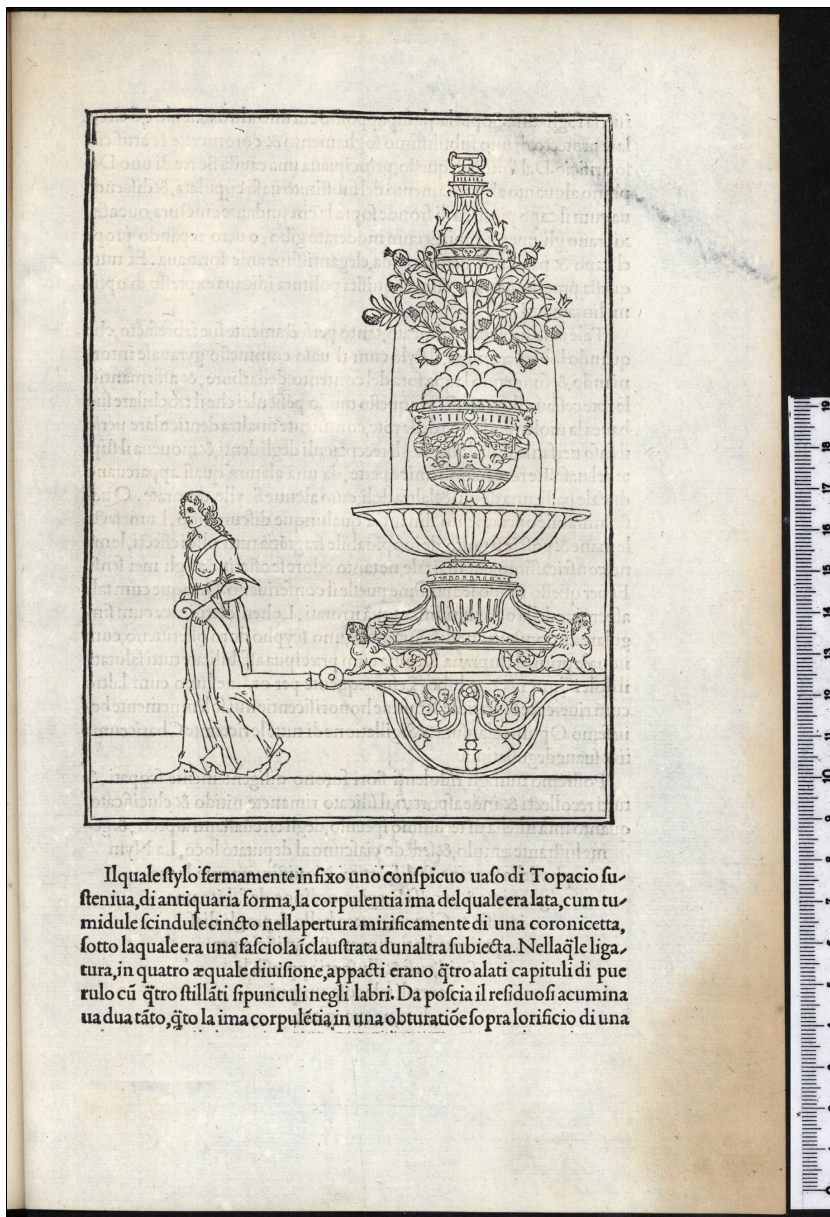 Ilquale stylo fermamente infixo uno conspicuo uaso di Topacio su-
steniua, di antiquaria forma, la corpulentia ima delquale era lata, cum tu-
midule scindule cincto nellapertura mirificamente di una coronicetta,
sotto laquale era una fasciola ĩclaustrata dunaltra subiecta. Nellaq̃le liga-
tura, in quatro æquale diuisione, appacti erano q̃tro alati capituli di pue
rulo cũ q̃tro stillãti sipunculi negli labri. Da poscia il residuo si acumina
ua dua tãto, q̃to la ima corpulẽtia, in una obturatiõe sopra lorificio di una
19
14
13
12
11
10
9
8
7
6
5
4
3
2
1
0